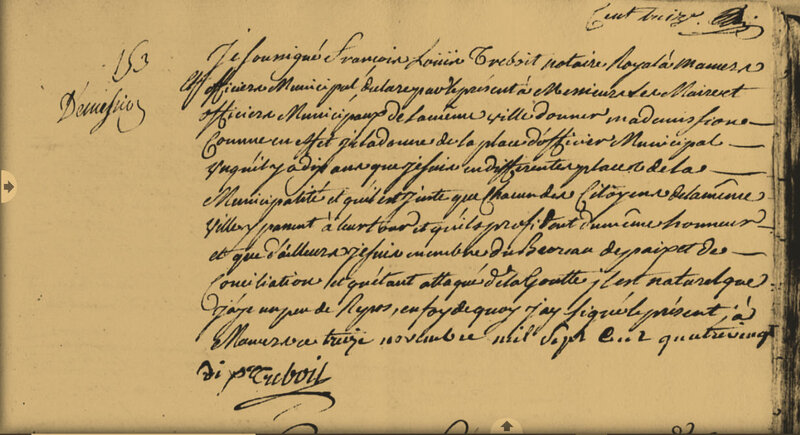 Cent treize
153
Démission
Je soussigné François Louis Treboil notaire Royal à Mamers
et officiers Municipal declare par le présent à Messieurs les Maire et
officiers Municipaux de la meme ville donner ma demission
Comme en effet je la donne de la place d'officier Municipal
vu qu'il y à dix ans que je suis en differentes places de la
Municipalité et qu'il est juste que chacun des Citoyens de la même
Ville y passent à leur tour et qu'ils profitent d'un même honneur
et que d'ailleurs je suis membre du Bureau de paix et de
Conciliation et qu'étant attaqué de la Goutte il est naturel que
j'aye un peu de Repos, en foy de quoy j'ay signé le présent, à
Mamers ce treize novembre mil Sept Cent quatrevingt
dix Treboil